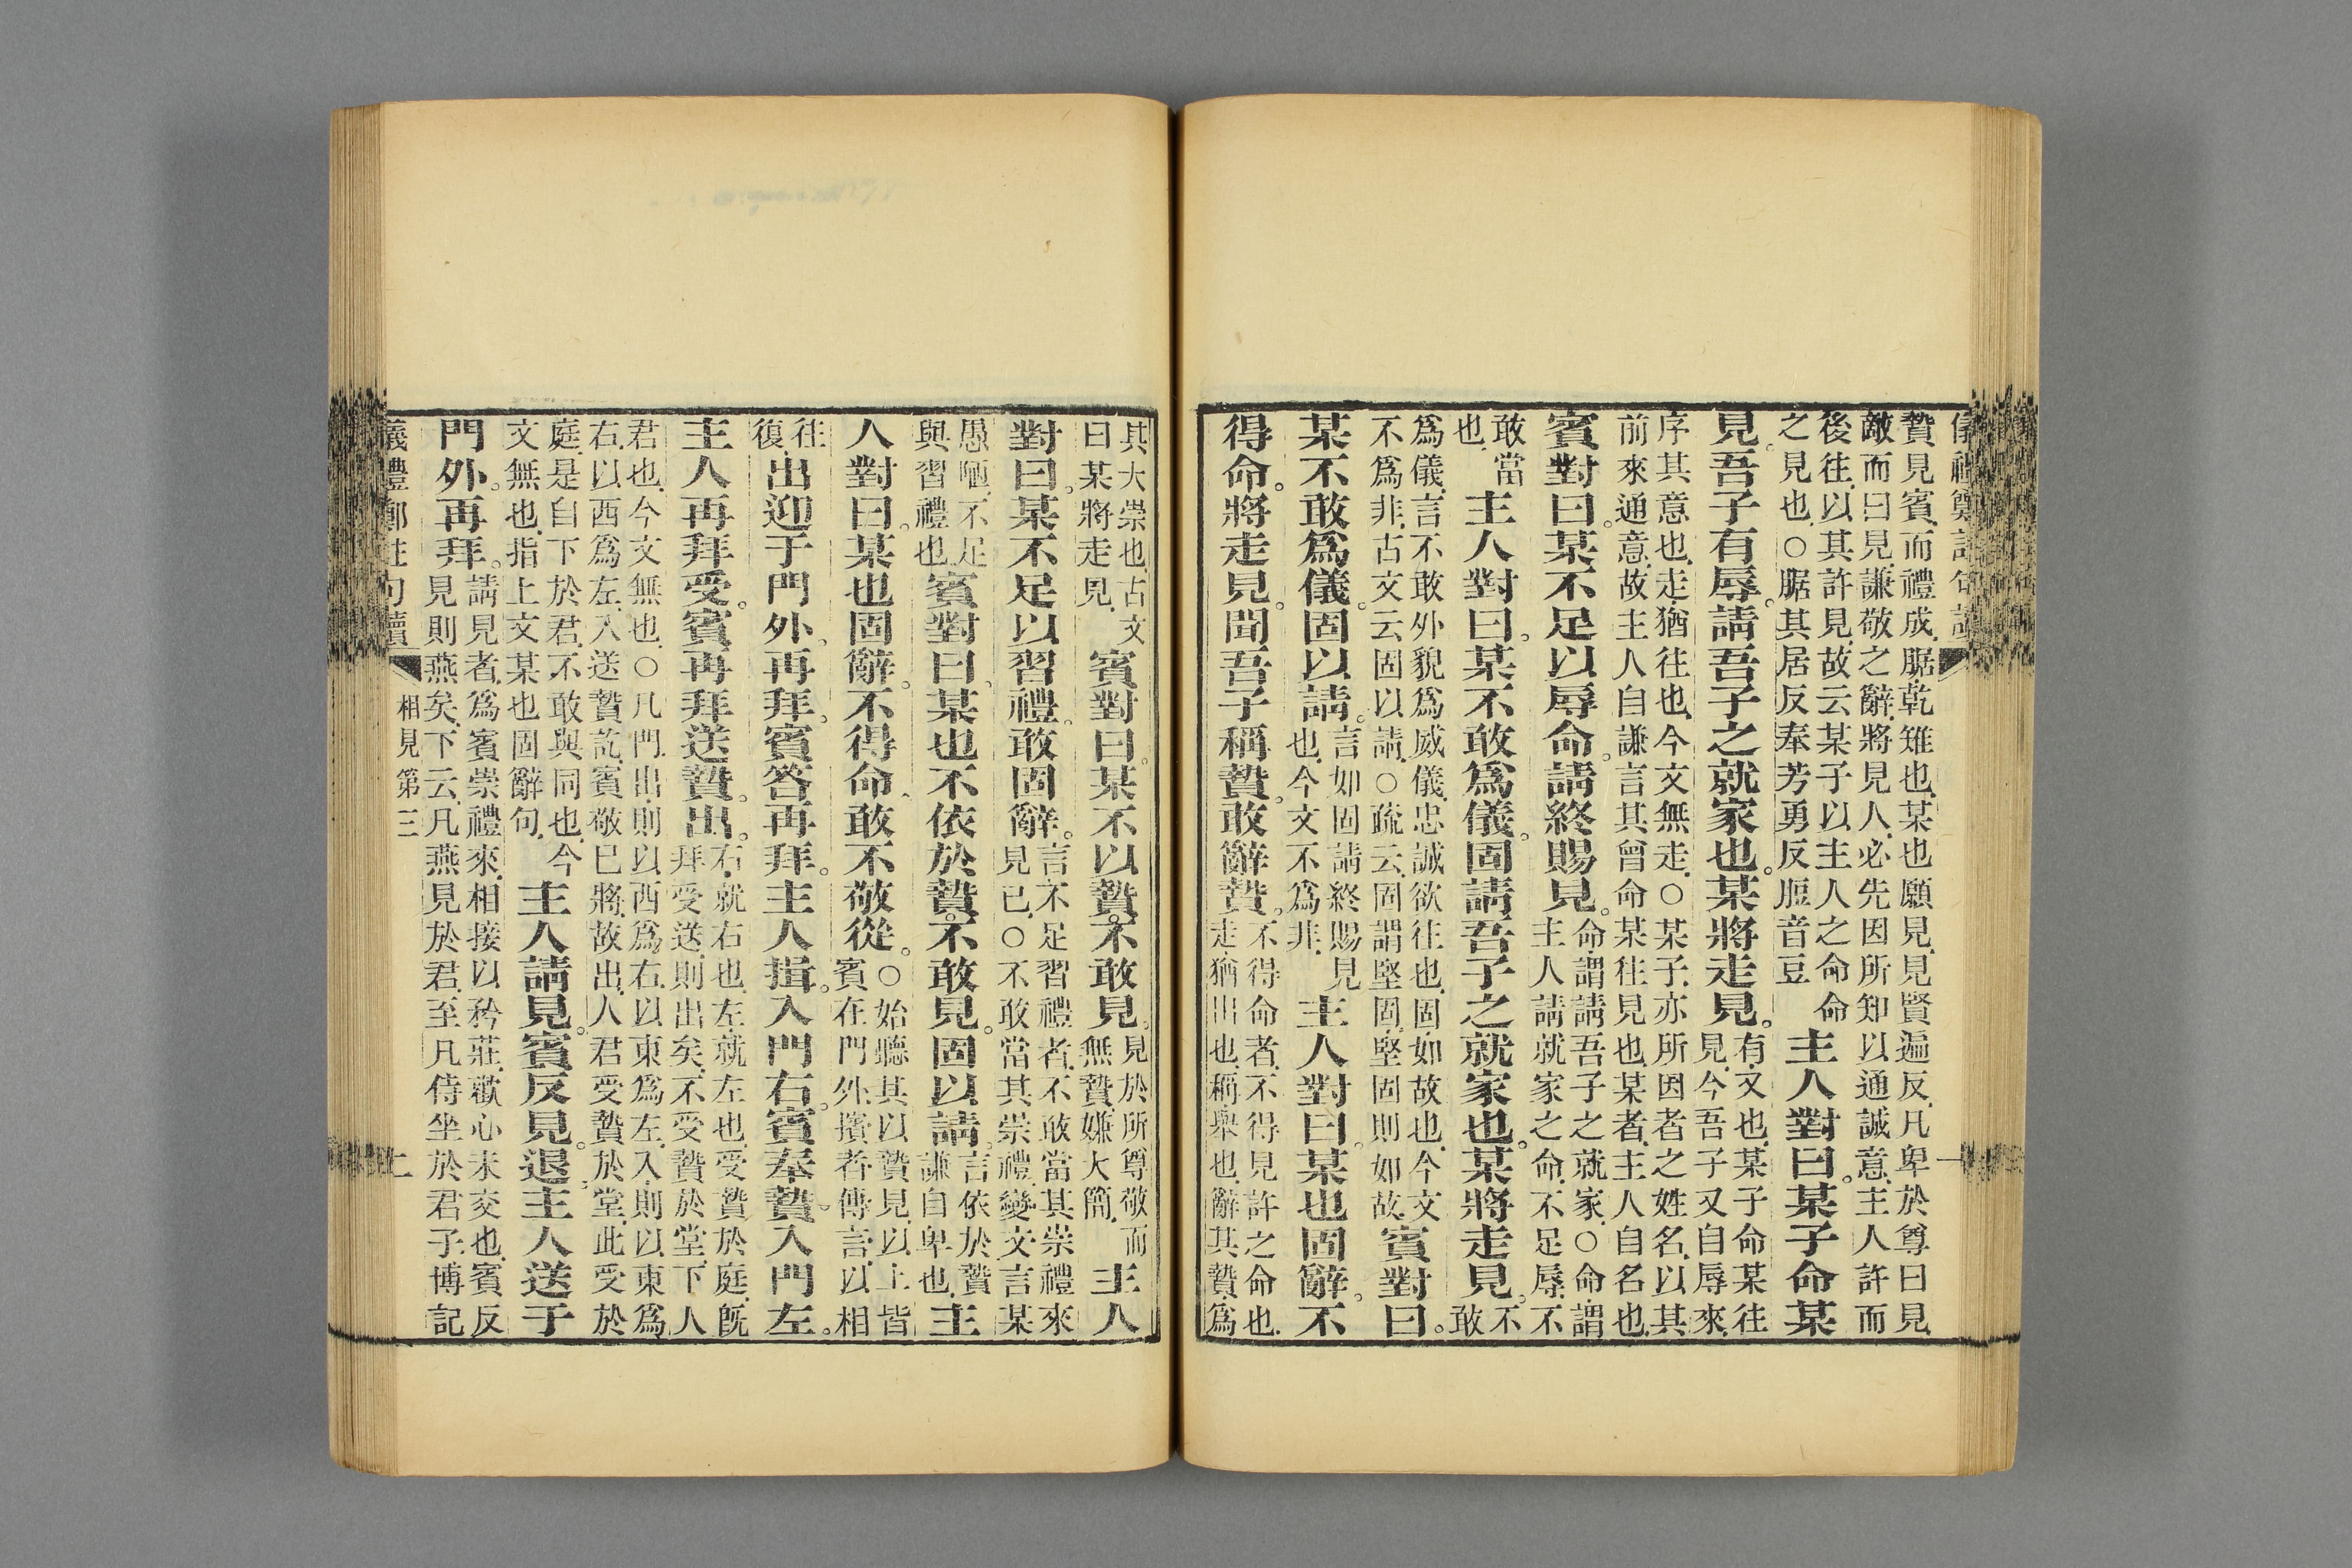 儀禮鄭註句讀
一
贄見賓而禮成腒乾雉也某也願見見賢遍反凡卑於尊曰見
敵而曰見謙敬之辭將見人必先因所知以通誠意主人許而
後往以其許見故云某子以主人之命命
之見也○腒其居反奉芳勇反脰音豆
主人對曰某子命某
見吾子有辱請吾子之就家也某將走見
有又也某子命某往
見今吾子又自辱來
序其意也走猶往也今文無走○某子亦所因者之姓名以其
前來通意故主人自謙言其曾命某往見也某者主人自名也
賓對曰某不足以辱命請終賜見
命謂請吾子之就家○命謂
主人請就家之命不足辱不
敢當
也
主人對曰某不敢爲儀固請吾子之就家也某將走見
不
敢
爲儀言不敢外貌爲威儀忠誠欲往也固如故也今文
不爲非古文云固以請○疏云固謂堅固堅固則如故
賓對曰
某不敢爲儀固以請
言如固請終賜見
也今文不爲非
主人對曰某也固辭不
得命將走見聞吾子稱贄敢辭贄
不得命者不得見許之命也
走猶出也稱舉也辭其贄爲
其大崇也古文
曰某將走見
賓對曰某不以贄不敢見
見於所尊敬而
無贄嫌大簡
主人
對曰某不足以習禮敢固辭
言不足習禮者不敢當其崇禮來
見已○不敢當其崇禮變文言某
愚陋不足
與習禮也
賓對曰某也不依於贄不敢見固以請
言依於贄
謙自卑也
主
人對曰某也固辭不得命敢不敬從
○始聽其以贄見以上皆
賓在門外擯者傳言以相
往
復
出迎于門外再拜賓答再拜主人揖入門右賓奉贄入門左
主人再拜受賓再拜送贄出
右就右也左就左也受贄於庭旣
拜受送則出矣不受贄於堂下人
君也今文無也○凡門出則以西爲右以東爲左入則以東爲
右以西爲左入送贄訖賓敬已將故出人君受贄於堂此受於
庭是自下於君不敢與同也今
文無也指上文某也固辭句
主人請見賓反見退主人送于
門外再拜
請見者爲賓崇禮來相接以矜莊歡心未交也賓反
見則燕矣下云凡燕見於君至凡侍坐於君子博記
儀禮鄭註句讀
相見第三
二